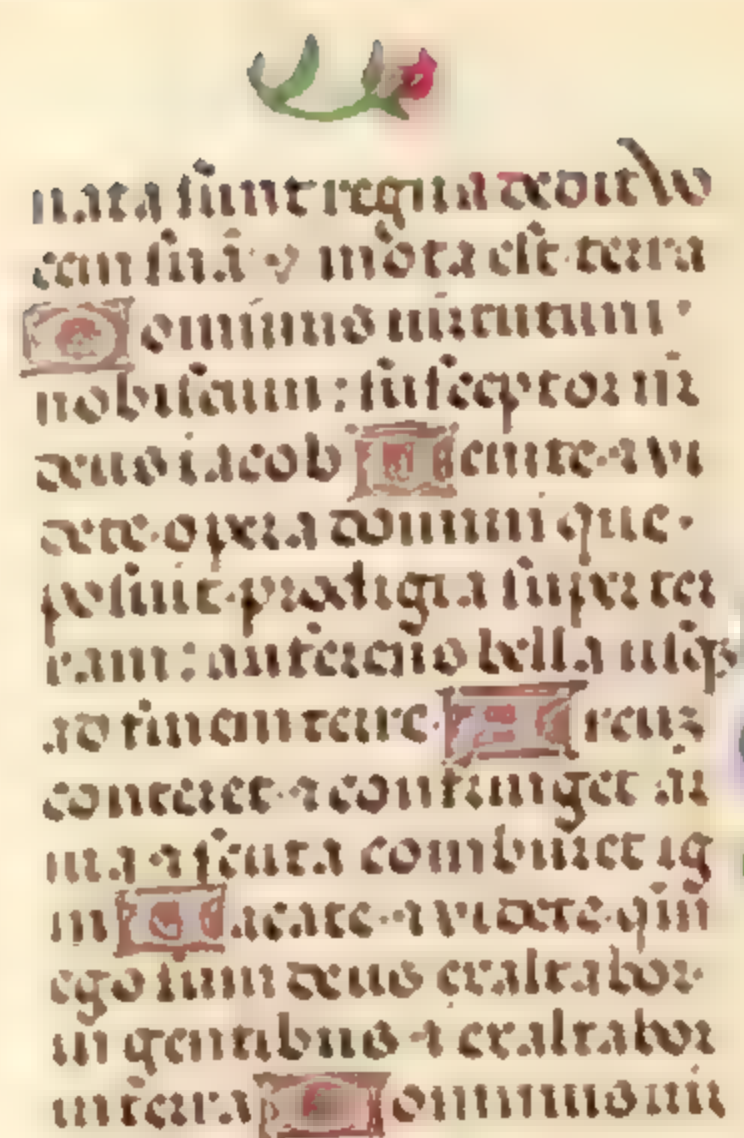 nata sunt regna dedit vo
cem suā · ⁊ mota est terra
Dominus uirtutum
nobiscum : susceptor nr̄
deus iacob Uenite · ⁊ vi
dete · opera domini que ·
posuit · prodigia super ter
ram : auferens bella usq̄
ad finem terre · Arcuz
conteret · ⁊ confringet ar
ma · ⁊ scuta comburet ig
ni Uacate · ⁊ videte · qm̄
ego sum deus exaltabor
in gentibus · ⁊ exaltabor
in terra Dominus uir